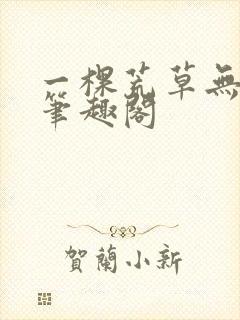 一棵荒草無
筆趣閣
賀蘭小新